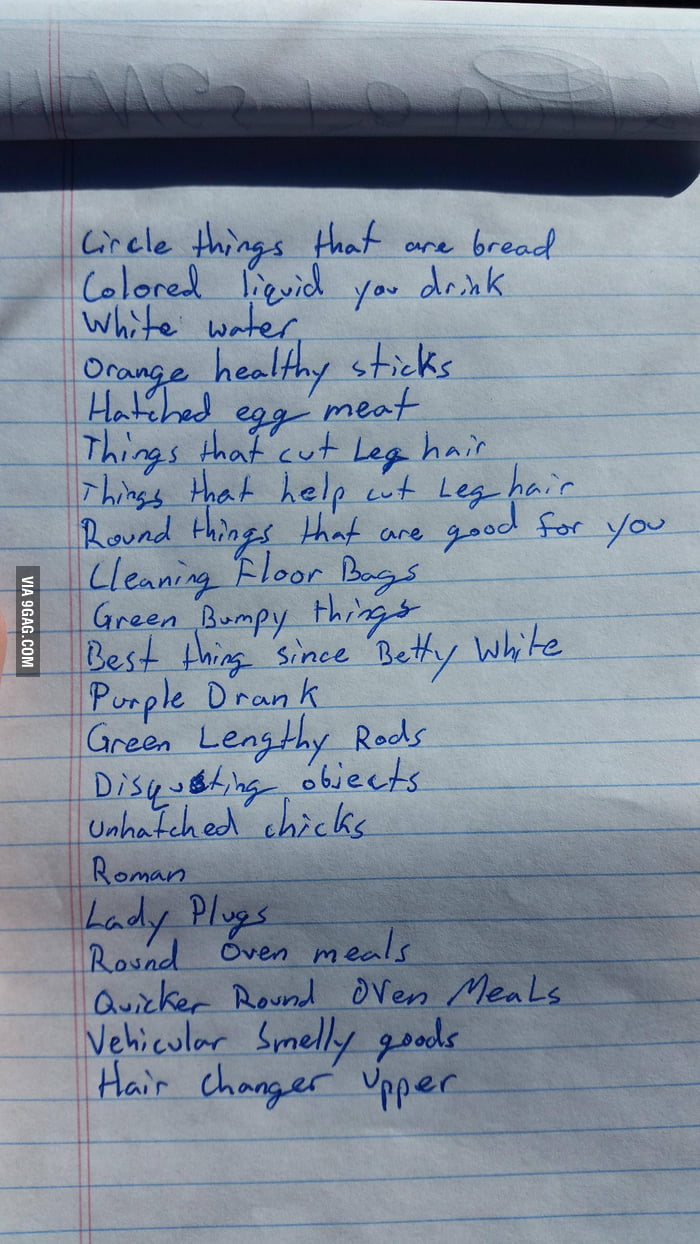 Circle things that are bread
Colored liquid you drink
White water
Orange healthy sticks
Hatched egg meat
Things that cut Leg hair
Things that help cut Leg hair
Round things that are good for you
Cleaning Floor Bags
Green Bumpy things
Best thing since Betty White
Purple Drank
Green Lengthy Rods
Disqusting objects
unhatched chicks
Roman
Lady Plugs
Round Oven meals
Quicker Round Oven Meals
Vehicular Smelly goods
Hair changer upper
VIA 9GAG.COM